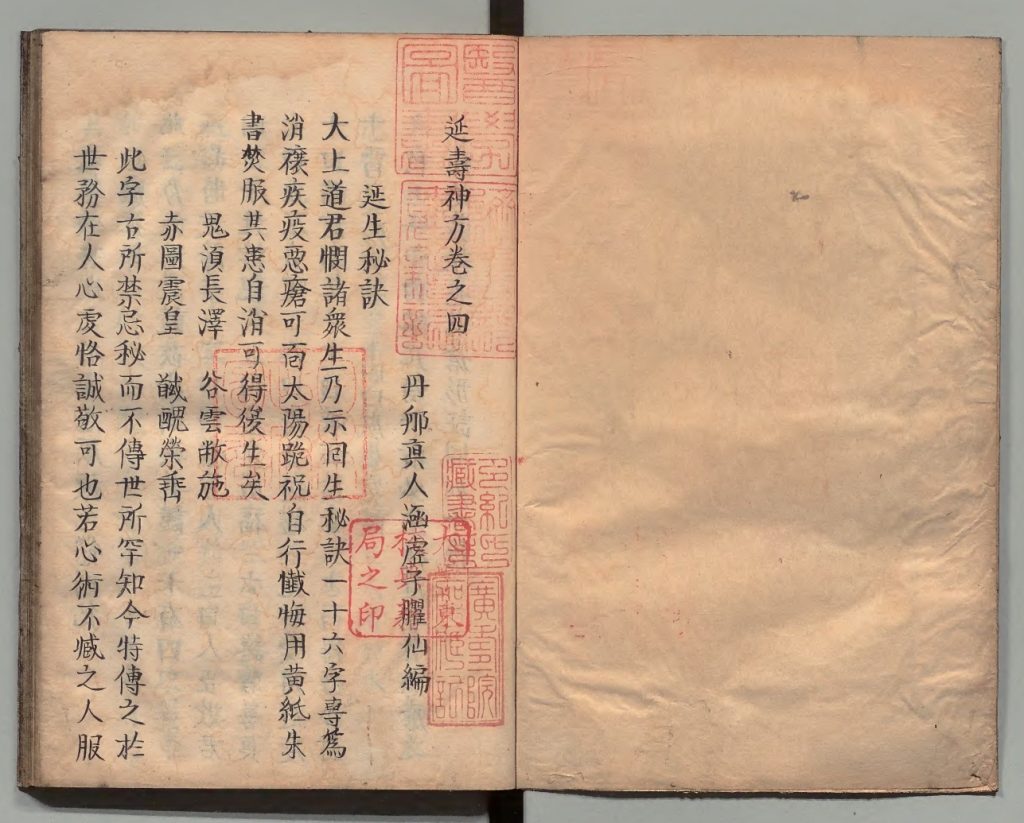 延壽神方卷之四
丹丘眞人涵虚子臞仙編
延生秘訣
大上道君憫諸衆生乃示囘生秘訣一十六字專爲
消禳疾疫惡瘡可百太陽跪祝自行懺悔用黄紙朱
書焚服其患自消可得後生矣
鬼湏長澤 谷雲敝施
赤圖震皇 醎醜榮
此字古所禁忌秘而不傳世所罕知今特傳之於
世務在人心虔恪誠敬可也若心術不臧之人服
局之印